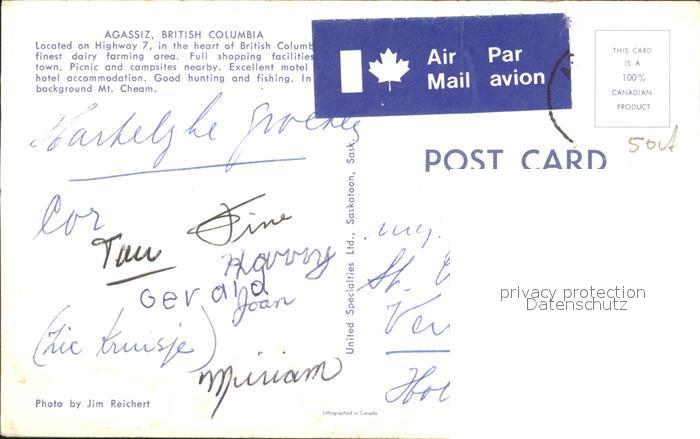 AGASSIZ, BRITISH COLUMBIA
Located on Highway 7, in the heart of British Columb
finest dairy farming area. Full shopping facilities
town. Picnic and campsites nearby. Excellent motel
hotel accommodation. Good hunting and fishing. In
background Mt. Cheam.
Air Mail
Par avion
THIS CARD
IS A
100%
CANADIAN
PRODUCT
50ct
POST CARD
Hartelyke groeten
Cor
Tine
Harry
Gerald
Joan
Miriam
St.
United Specialties Ltd., Saskatoon, Sask.
privacy protection
Datenschutz
Photo by Jim Reichert
Lithographed in Canada